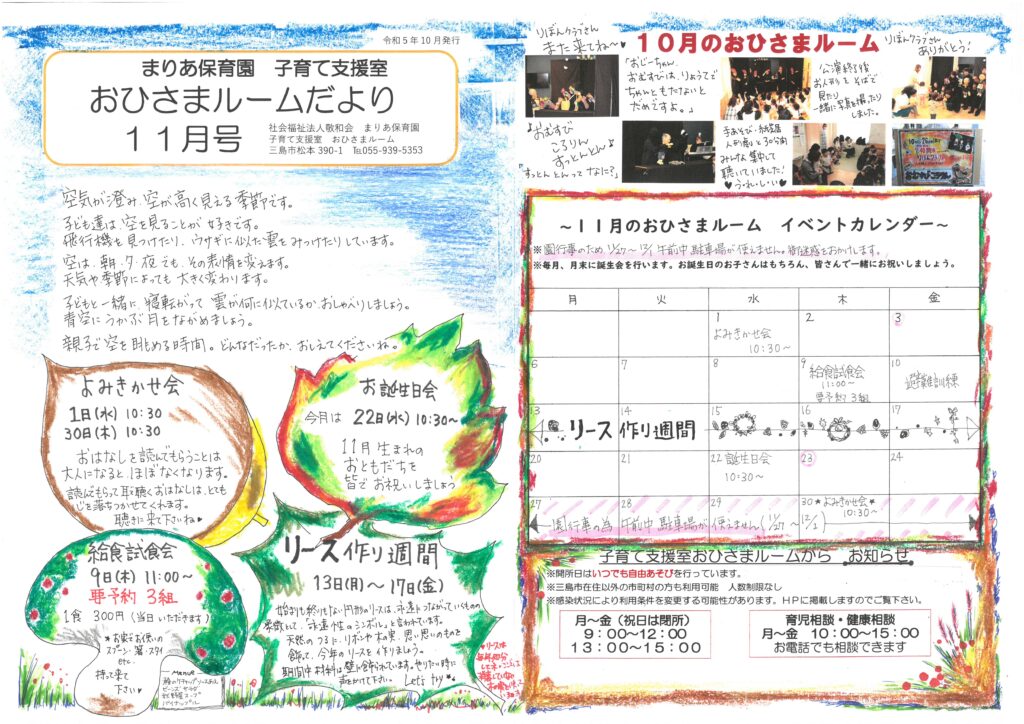 令和5年10月発行
まりあ保育園 子育て支援室
おひさまルームだより
11月号
社会福祉法人敬和会 まりあ保育園
子育て支援室 おひさまルーム
三島市松本390-1 ℡055-939-5353
空気が澄み、空が高く見える季節です。
子ども達は、空を見ることが好きです。
飛行機を見つけたり、ウサギに似た雲をみつけたりしています。
空は、朝、夕、夜でも、その表情を変えます。
天気や季節によっても大きく変わります。
子どもと一緒に寝転がって雲が何に似ているか、おしゃべりしましょう。
青空にうかぶ月をながめましょう。
親子で空を眺める時間。どんなだったか、おしえてくださいね。
よみきかせ会
1日(水) 10:30
30日(木) 10:30
おはなしを読んでもらうことは
大人になると、ほぼなくなります。
読んでもらって耳で聴くおはなしは、とても
心を落ちつかせてくれます。
聴きに来て下さいね♥
お誕生日会
今月は 22日(水) 10:30~
11月生まれの
おともだちを
皆でお祝いしましょう
給食試食会
9日(木) 11:00~
要予約 3組
1食 300円(当日いただきます)
*お家でお使いの
スプーン・箸・スタイ
etc.
持って来て
下さい♥
MENUE
パイナップル
リース作り週間
13日(月)~17日(金)
始めりも終りもない円形のリースは、永遠につながっていくものの
象徴として、「永遠性のシンボル」と言われています。
天然のつるに、リボンや木の実、思い思いのものを
飾って、今年のリースを作りましょう。
期間中材料は壁に飾られています。やりたい時に
声をかけて下さい。 Let's try♥
りぼんクラブさん
また来てね~♥
10月のおひさまルーム
りぼんクラブさん
ありがとう!
「おじーちゃん、
おむすびは、りょうてで
ちゃんともたないと
だめですよ。」
公演終了後
お人形をそばで
見たり
一緒に写真を撮ったり
しました。
♪おむすび
ころりん
すっとんとん♪
すっとんとんって なに?」
手あそび・紙芝居
人形劇と30分間
みんな集中して
聴いていました!
うれしい♥
~11月のおひさまルーム イベントカレンダー~
※園行事のため、11/27~12/1 午前中駐車場が使えません。御迷惑をおかけします。
※毎月、月末に誕生会を行います。お誕生日のお子さんはもちろん、皆さんで一緒にお祝いしましょう。
月 火 水 木 金
1 2 3
よみきかせ会
10:30~
6 7 8 9 10
給食試食会
11:00~
要予約3組
避難訓練
13 14 15 16 17
リース作り週間
20 21 22 23 24
誕生日会
10:30~
27 28 29 30
*よみきかせ会*
10:30~
園行事の為 午前中 駐車場が使えません(11/27~12/1)
子育て支援室おひさまルームから お知らせ
※開所日はいつでも自由あそびを行っています。
※三島市在住以外の市町村の方も利用可能 人数制限なし
※感染状況により利用条件を変更する可能性があります。HPに掲載しますのでご覧下さい。
月~金(祝日は閉所)
9:00~12:00
13:00~15:00
育児相談・健康相談
月~金 10:00~15:00
お電話でも相談できます